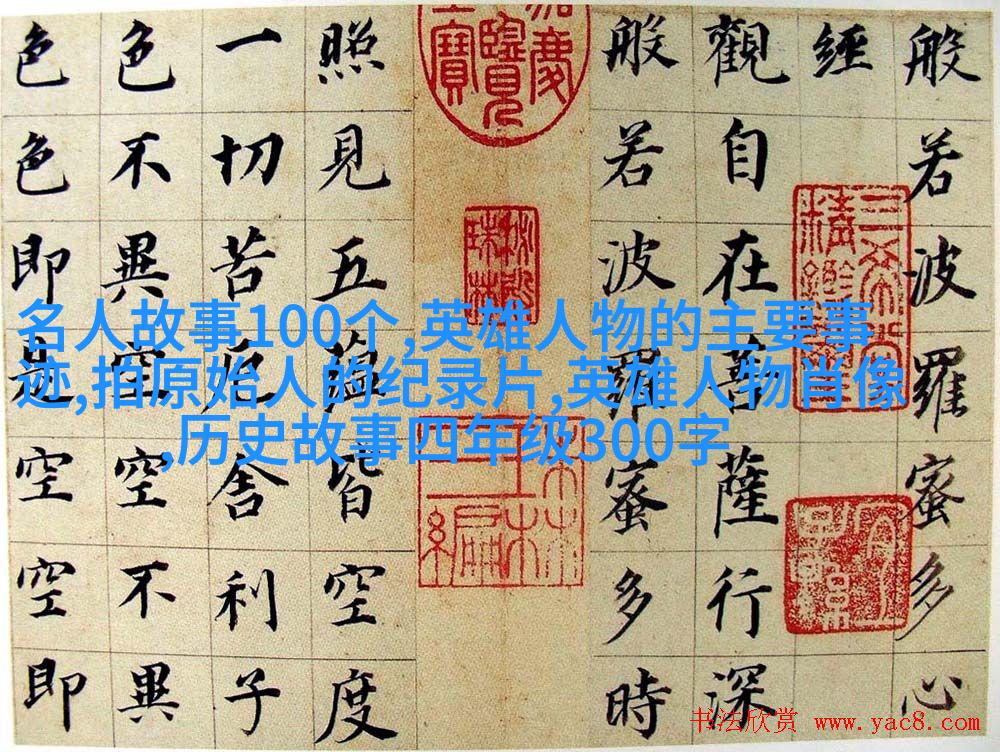 般若波羅蜜多心
經
觀自在菩薩行深
般若波羅蜜多時
照見五蘊皆空度
一切苦厄舍利子
色不異空空不異
色色即是空空即
三希堂精鑑璽
宜子孫
秘殿珠林
名人故事100个,英雄人物的主要事
迹,拍原始人的纪录片,英雄人物肖像
,历史故事四年级300字
书法欣赏 www.yac8.com